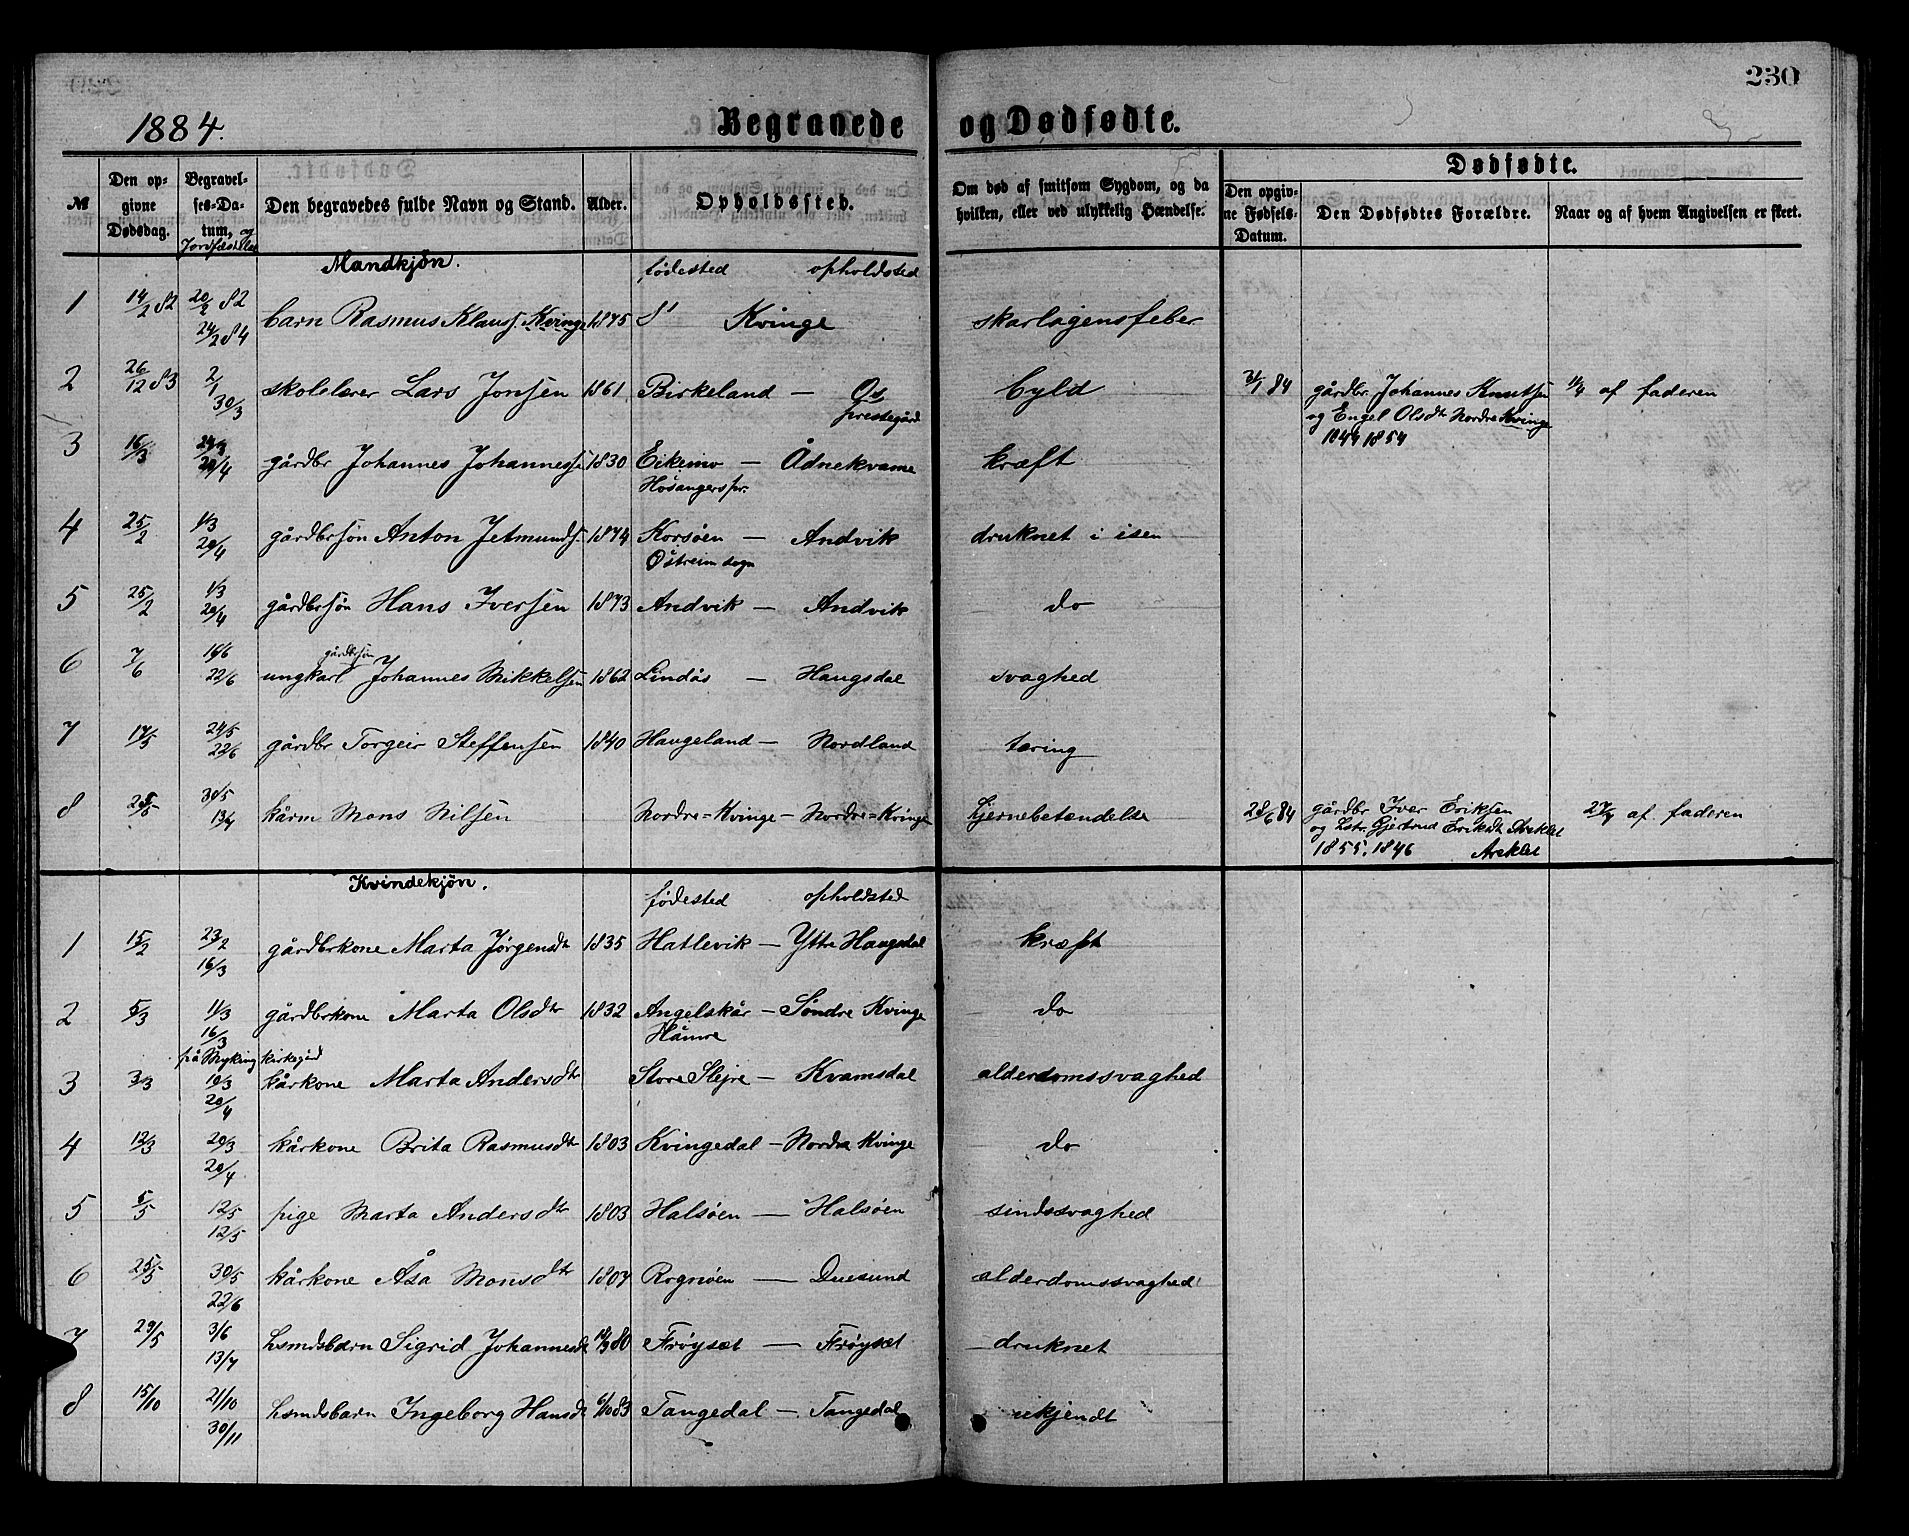 230
1884.
Begravede og Dødfødte.
№
Den opgivne Dødsdag.
Begravelses-Datum, og Jordfæstelse
Den begravedes fulde Navn og Stand.
Alder.
Opholdssted.
Om død af smitsom Sygdom, og da hvilken, eller ved ulykkelig Hændelse.
Dødfødte.
Den opgivne Fødsels-Datum.
Den Dødfødtes Forældre.
Naar og af hvem Angivelsen er skeet.
Mandkjøn. fødested opholdsted
1 14/2 82 20/2 82 24/2 84 barn Rasmus Klauss. Kvinge 1875 S' Kvinge skarlagensfeber
2 26/12 83 2/1 30/3 skolelærer Lars Jonsen 1861 Birkeland — Os prestegård byld
84 gårdbr Johannes Knutsen og Engel Olsdtr Nordre Kvinge 1844 1854 af faderen
3 16/3 20/4 gårdbr Johannes Johannessen 1830 Eikemo Hosangers pr. — Ådnekvame kræft
4 25/2 1/3 20/4 gårdbrsøn Anton Jetmunds. 1874 Korsøen Østreim sogn — Andvik druknet i isen
5 25/2 1/3 20/4 gårdbrsøn Hans Iversen 1873 Andvik — Andvik do
6 7/6 14/6 22/6 ungkarl gårdbrsøn Johannes Mikkelsen 1862 Lindås — Haugsdal svaghed
7 17/5 24/5 22/6 gårdbr Torgeir Steffensen 1840 Haugeland — Nordland tæring
8 30/5 13/7 kårm Mons Nilsen Nordre=Kvinge — Nordre=Kvinge hjernebetændelse
28/6 84 gårdbr Iver Eriksen og hstr. Gjertrud Eriksdt Areklet 1855. 1846 Areklet 27/7 af faderen
Kvindekjøn. fødested opholdsted
1 15/2 23/2 16/3 gårdbrkone Marta Jørgensdtr 1835 Hatlevik — Ytre Haugsdal kræft
2 5/3 11/3 16/3 gårdbrkone Marta Olsdtr 1832 Angelskår Håmre — Søndre Kvinge do
på Myking kirkegård
3 3/3 10/3 20/4 kårkone Marta Andersdtr Store Slejre — Kvamsdal alderdomssvaghed
4 12/3 20/3 20/4 kårkone Brita Rasmusdtr 1803 Kvingedal — Nordre Kvinge do
5 5/5 12/5 12/5 pige Marta Andersdtr 1803 Halsøen — Halsøen sindssvaghed
6 25/5 30/5 22/6 kårkone Åsa Monsdtr 1807 Rognøen — Duesund alderdomssvaghed
7 29/5 3/6 13/7 hsmdsbarn Sigrid Johannesdt 80 Frøyset — Frøyset druknet
8 15/10 21/10 30/11 hsmdsbarn Ingeborg Hansdt 6/10 83 Tangedal — Tangedal ukjendt